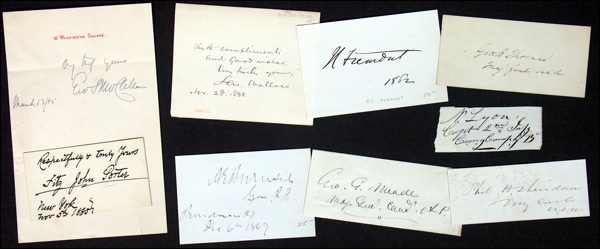 32 Washington Square.
Very truly yours
Geo B McClellan
March 13/85
Respectfully & truly Yours
Fitz John Porter
New York
Nov 5th 1885
With compliments
and good wishes,
Very truly yours,
Lew. Wallace
Nov. 28. 1888
Fremont
1862
Geo. H. Thomas
Maj Genl U.S.A
N. Lyon
Capt 2nd Inf
Comg Comp B
A E Burnside
Providence RI
Dec 6th 1867
Geo. G. Meade
Maj. Genl. Comd. A.P.
Phil H Sheridan
Maj Genl
USA